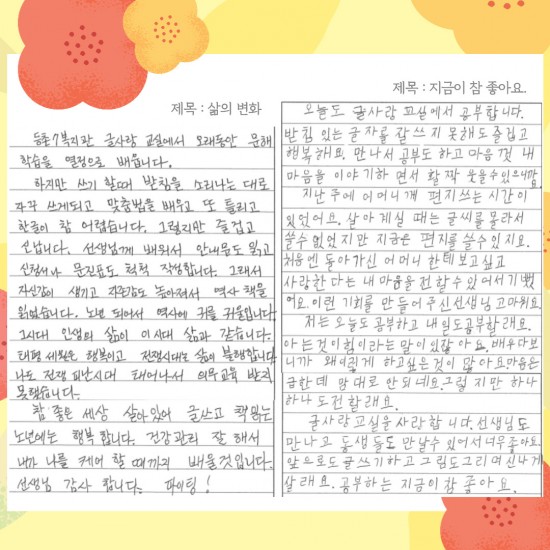 제목 : 삶의 변화
등촌7복지관 글사랑 교실에서 오래동안 문해
학습을 열정으로 배웁니다.
하지만 쓰기 할때 받침을 소리나는 대로
자꾸 쓰게되고 맞춤법을 배우고 또 틀리고
한글이 참 어렵습니다. 그렇지만 즐겁고
신납니다. 선생님께 배워서 안내문도 읽고
신청서나 문진표도 척척 작성합니다. 그래서
자신감이 생기고 자존감도 높아져서 역사 책을
읽었습니다. 노년 되어서 역사에 귀를 귀울입니다.
그시대 인생의 삶이 이시대 삶과 같습니다.
태평 세월은 행복이고 전쟁시대는 삶의 불행합니다.
나도 전쟁 피난시대 태어나서 의무교육 받지
못했습니다.
참 좋은 세상 살아있어 글쓰고 책읽는
노년에는 행복 합니다. 건강관리 잘 해서
내가 나를 케어 할 때까지 배울것입니다.
선생님 감사 합니다. 파이팅!
제목 : 지금이 참 좋아요.
오늘도 글사랑 교실에서 공부합니다.
받침 있는 글자를 잘 쓰지 못해도 즐겁고
행복해요. 만나서 공부도 하고 마음 것 내
마음을 이야기하 면서 활짝 웃을수있으니깜
지난 주에 어머니께 편지쓰는 시간이
있었어요. 살아계실 때는 글씨를 몰라서
쓸수 없었지만 지금은 편지를 쓸수있지요.
처음엔 돌아가신 어머니 한테 보고싶고
사랑한다는 내 마음을 전할수 있어서 기뻤
어요. 이런 기회를 만들어주신선생님 고마워요.
저는 오늘도 공부하고 내일도공부할래요.
아는것이힘이라는말이 있잖아요. 배우다보
니까 왜이렇게 하고싶은것이 많아요.마음은
급한데 맘 대로 안되네요.그렇지만 하나
하나 도전 할래요.
글사랑교실을사랑합니다.선생님도
만나고 동생들도 만날수 있어서 너무좋아요.
앞으로도 글쓰기하고 그림도그리며 신나게
살래요. 공부하는 지금이 참 좋아요.